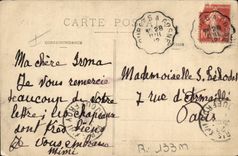 CARTE POSTALE
CORRESPONDANCE
Ma chère Irma
Je vous remercie
beaucoup de votre
lettre; les chapeaux
sont très bien
Je vous embrasse
Mimi
Mademoiselle
7 rue d'Armaillé
Paris
R. 133M